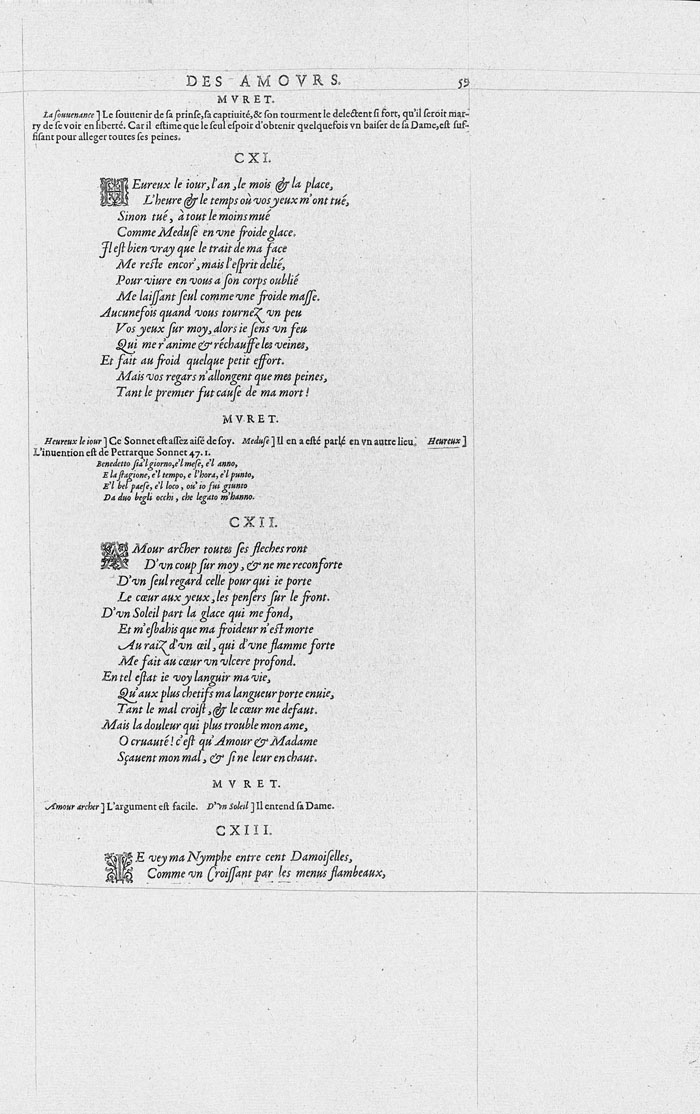 DES AMOVRS. 59
MVRET.
La souuenance] Le souuenir de sa prinse, sa captiuité, & son tourment le delectent si fort, qu'il seroit mar-
ry de se voir en liberté. Car il estime que le seul espoir d'obtenir quelquefois vn baiser de sa Dame, est suf-
fisant pour alleger toutes ses peines.
CXI.
HEureux le iour, l'an, le mois & la place,
L'heure & le temps où vos yeux m'ont tué,
Sinon tué, à tout le moins mué
Comme Meduse en vne froide glace.
Il est bien vray que le trait de ma face
Me reste encor', mais l'esprit delié,
Pour viure en vous a son corps oublié
Me laissant seul comme vne froide masse.
Aucunefois quand vous tournez vn peu
Vos yeux sur moy, alors ie sens vn feu
Qui me r'anime & réchauffe les veines,
Et fait au froid quelque petit effort.
Mais vos regars n'allongent que mes peines,
Tant le premier fut cause de ma mort!
MVRET.
Heureux le iour] Ce Sonnet est assez aisé de soy. Meduse] Il en a esté parlé en vn autre lieu. Heureux]
L'inuention est de Petrarque Sonnet 47. 1.
Benedetto sia'l giorno, e'l mese, e'l anno,
E la stagione, e'l tempo, e l'hora, e'l punto,
E'l bel paese, e'l loco, ou' io fui giunto
Da duo begli occhi, che legato m'hanno.
CXII.
AMour archer toutes ses fleches ront
D'vn coup sur moy, & ne me reconforte
D'vn seul regard celle pour qui ie porte
Le cœur aux yeux, les pensers sur le front.
D'vn Soleil part la glace qui me fond,
Et m'esbahis que ma froideur n'est morte
Au raiz d'vn œil, qui d'vne flamme forte
Me fait au cœur vn vlcere profond.
En tel estat ie voy languir ma vie,
Qu'aux plus chetifs ma langueur porte enuie,
Tant le mal croist, & le cœur me defaut.
Mais la douleur qui plus trouble mon ame,
O cruauté! c'est qu'Amour & Madame
Sçauent mon mal, & si ne leur en chaut.
MVRET.
Amour archer] L'argument est facile. D'vn Soleil] Il entend sa Dame.
CXIII.
IE vey ma Nymphe entre cent Damoiselles,
Comme vn Croissant par les menus flambeaux,